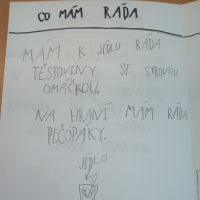 CO MÁM RÁDA
MÁM K JÍDLU RÁDA
TĚSTOVINY SE SYROVOU
OMÁČKOU.
NA HRANÍ MÁM RÁDA
PEČOPÁKY.
JÍDLO